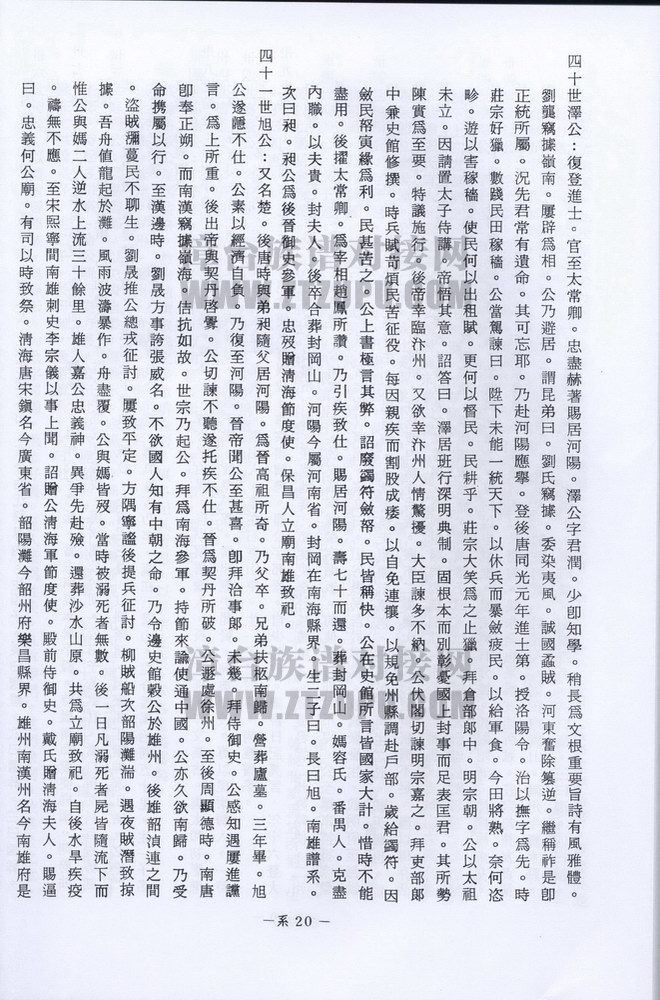 四十世澤公：復登進士。官至太常卿。忠盡赫著賜居河陽。澤公字君潤。少卽知學。稍長為文根重要旨詩有風雅體。
劉龑竊據嶺南。屢辟爲相。公乃避居。謂昆弟曰。劉氏竊據。委染夷風。誠國蟊賊。河東奮除篡逆。繼稱祚是卽
正統所屬。況先君常有遺命。其可忘耶。乃赴河陽應舉。登後唐同光元年進士第。授洛陽令。治以撫字爲先。時
莊宗好獵。數踐民田稼穡。公當駕諫曰。陛下未能一統天下。以休兵而暴斂疲民。以給軍食。今田將熟。奈何恣
畛。遊以害稼穡。使民何以出租賦。更何以督民。民耕乎。莊宗大笑爲之止獵。拜倉部郎中。明宗朝。公以太祖
未立。因請置太子侍講。帝悟其意。詔答曰。澤居班行深明典制。固根本而別彰憂國上封事而足表匡君。其所勢
陳實爲至要。特議施行。後帝幸臨汴州。又欲幸汴州人情驚擾。大臣諫多不納。公伏閣切諫明宗嘉之。拜吏部郎
中兼史館修撰。時兵賦苛煩民苦征役。每因親疾而割股成痿。以自免連壤。以規免州縣謂赴戶部。歲給蠲符。因
斂民帑寅緣爲利。民甚苦之。公上書極言其弊。詔廢蠲符斂帑。民皆稱快。公在史館所言皆國家大計。惜時不能
盡用。後擢太常卿。爲宰相趙鳳所讚。乃引疾致仕。賜居河陽。壽七十而還。葬封岡山。媽容氏。番禺人。克盡
內職。以夫貴。封夫人。後卒合葬封岡山。河陽今屬河南省。封岡在南海縣界。生二子曰。長曰旭。南雄譜系。
次曰昶。昶公爲後晉御史參軍。忠歿贈淸海節度使。保昌人立廟南雄致祀。
四十一世旭公：又名楚。後唐時與弟昶隨父居河陽。爲晉高祖所奇。乃父卒。兄弟扶柩南歸。營葬廬墓。三年畢。旭
公遂隱不仕。公素以經濟自負。乃復至河陽。晉帝聞公至甚喜。卽拜洽事郎。未幾。拜侍御史。公感知遇屢進讜
言。爲上所重。後出帝與契丹啓釁。公切諫不聽遂托疾不仕。晉爲契丹所破。公遯處徐州。至後周顯德時。南唐
卽奉正朔。而南漢竊據嶺海。佶抗如故。世宗乃起公。拜爲南海參軍。持節來諭使通中國。公亦久欲南歸。乃受
命携屬以行。至漢邊時。劉晟方事誇張威名。不欲國人知有中朝之命。乃令邊史館穀公於雄州。後雄韶湞連之間
。盜賊瀰蔓民不聊生。劉晟推公總戎征討。屢致平定。方隅寧謐後提兵征討。柳賊船次韶陽灘湍。遇夜賊潛致掠
據。吾舟値龍起於灘。風雨波濤暴作。舟盡覆。公與媽皆歿。當時被溺死者無數。後一日凡溺死者屍皆隨流下而
惟公與媽二人逆水上流三十餘里。雄人嘉公忠義神。異爭先赴殮。還葬沙水山原。共爲立廟致祀。自後水旱疾疫
。禱無不應。至宋熙寧間南雄刺史李宗儀以事上聞。詔贈公淸海軍節度使。殿前侍御史。戴氏贈淸海夫人。賜逼
曰。忠義何公廟。有司以時致祭。淸海唐宋鎭名今廣東省。韶陽灘今韶州府樂昌縣界。雄州南漢州名今南雄府是
－系20－
漳台族谱对接网
WWW.ZTZUPU.COM
漳台族谱对接网
WWW.ZTZUPU.COM